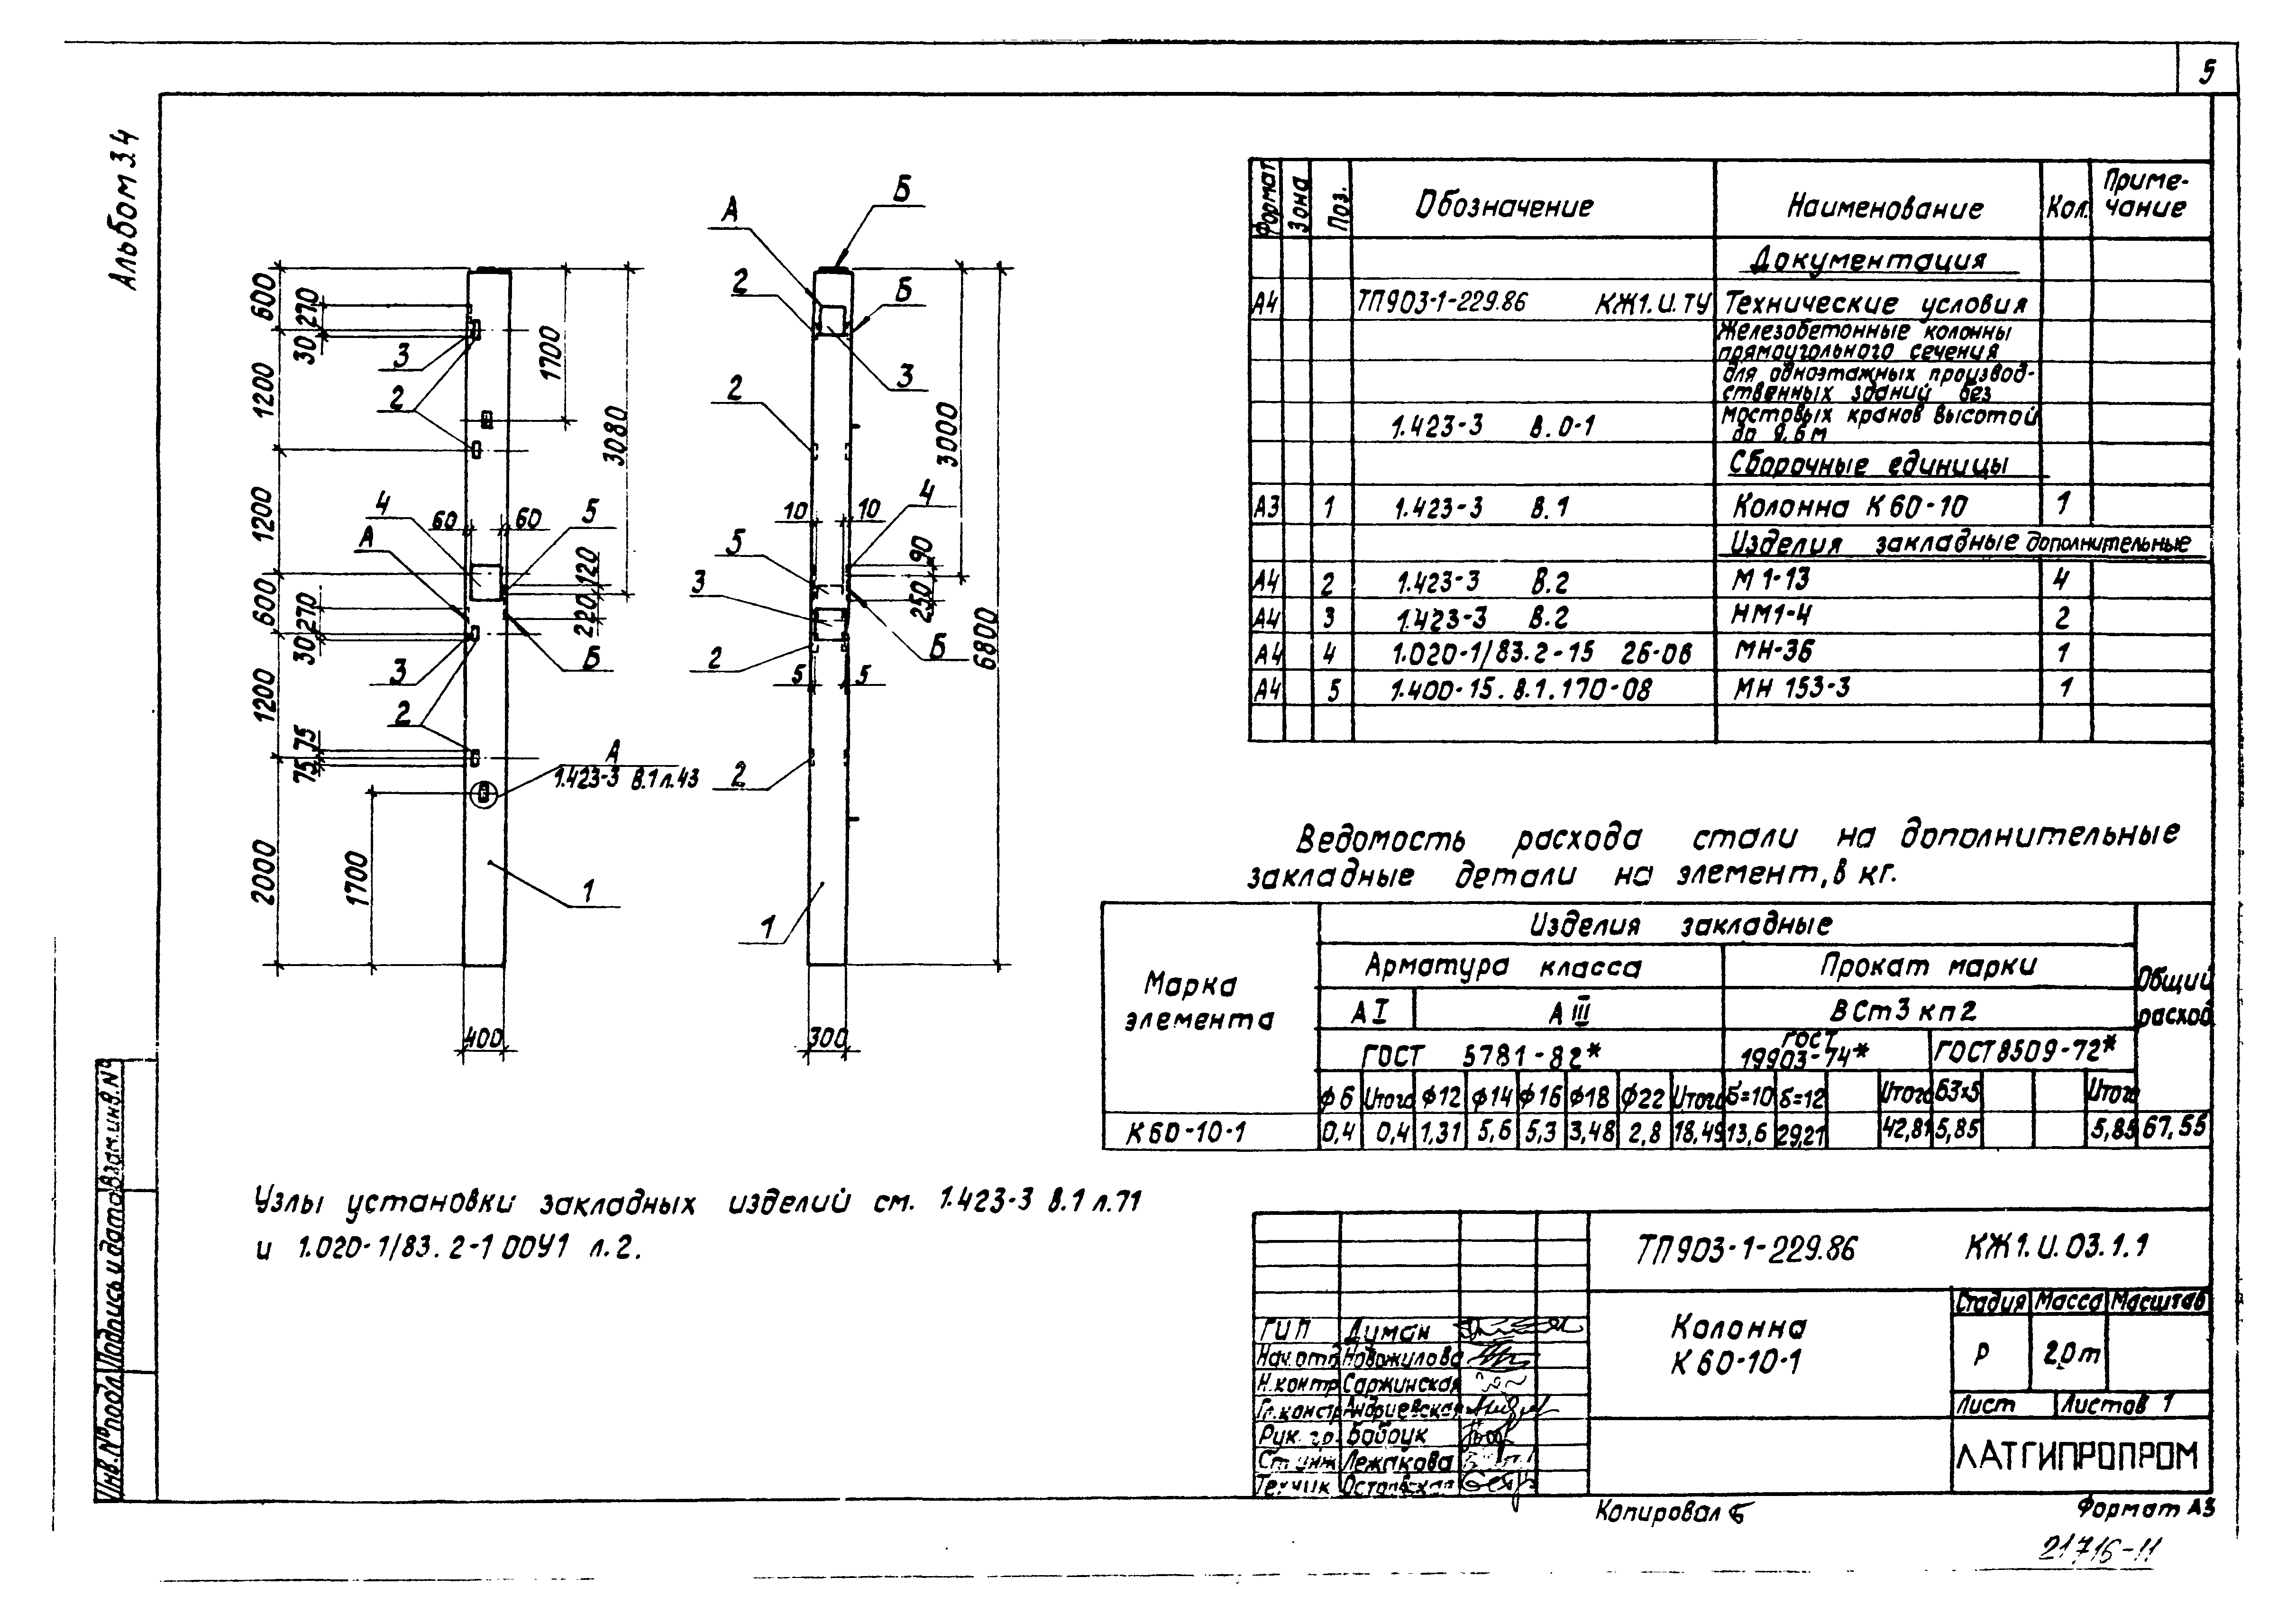 5
Альбом 3.4
600
270
30
1200
1200
600
270
30
1200
75
75
2000
1700
400
1700
3080
60
60
120
220
3
2
4
5
А
3
2
Б
А
1.423-3 В.1 л.43
1
А
Б
2
Б
3
2
3000
10
10
4
5
90
3
250
2
Б
5
5
6800
2
1
300
Формат Зона Поз. Обозначение Наименование Кол. Приме-
чание
Документация
А4 ТП903-1-229.86 КЖ1.И.ТУ Технические условия
Железобетонные колонны
прямоугольного сечения
для одноэтажных производ-
ственных зданий без
1.423-3 В.0-1 мостовых кранов высотой
до 9,6м
Сборочные единицы
А3 1 1.423-3 В.1 Колонна К60-10 1
Изделия закладные дополнительные
А4 2 1.423-3 В.2 М1-13 4
А4 3 1.423-3 В.2 НМ1-4 2
А4 4 1.020-1/83.2-15 26-06 МН-36 1
А4 5 1.400-15.В.1.170-08 МН 153-3 1
Ведомость расхода стали на дополнительные
закладные детали на элемент, в кг.
Марка
элемента
Изделия закладные
Общий
расход
Арматура класса Прокат марки
А I А III ВСт3 кп2
ГОСТ 5781-82* ГОСТ
19903-74* ГОСТ8509-72*
ф6 Итого ф12 ф14 ф16 ф18 ф22 Итого б=10 б=12 Итого 63х5 Итого
К60-10-1 0,4 0,4 1,31 5,6 5,3 3,48 2,8 18,49 13,6 29,21 42,81 5,85 5,85 67,55
Узлы установки закладных изделий см. 1.423-3 В.1 л.71
и 1.020-1/83.2-1 00У1 л.2.
ТП903-1-229.86 КЖ1.И.03.1.1
Колонна
К60-10-1
Стадия Масса Масштаб
Р 2,0т
Лист Листов 1
ЛАТГИПРОПРОМ
ГИП Диман
Нач.отд Новожилова
Н.контр Саржинская
Гл.констр Андриевская
Рук. гр. Бабаук
Ст инж Лежакова
Техник
Инв.№подл. Подпись и дата Взам.инв.№
Копировал
Формат А3
21716-11